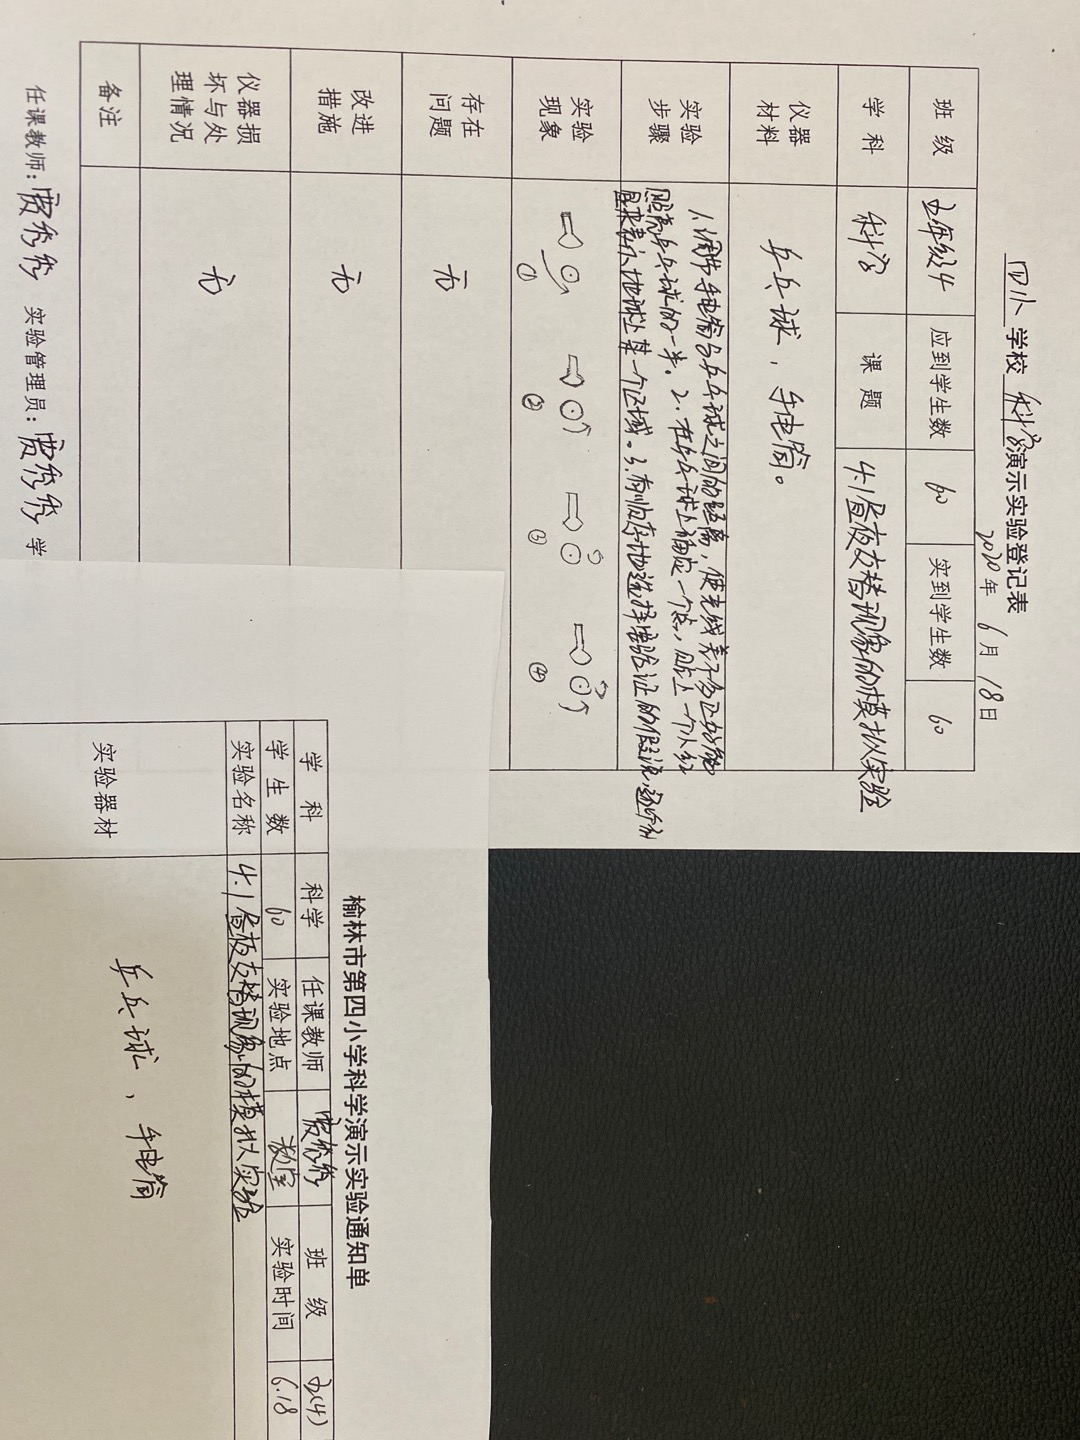 四小学校科学演示实验登记表
2020年6月18日
班级 五年级4 应到学生数 60 实到学生数 60
学科 科学 课题 4.1昼夜交替现象的模拟实验
仪器材料 乒乓球，手电筒。
实验步骤 1.调节手电筒与乒乓球之间的距离，使光线差不多正好能
照亮乒乓球的一半。2.在乒乓球上确定一个点，贴上一个小红
来表示地球上某一个区域。3.有顺序地选择要验证的假说，逐个
实验现象 ① ② ③ ④
存在问题 无
改进措施 无
仪器损坏与处理情况 无
备注
任课教师：贾秀秀 实验管理员：贾秀秀 学
榆林市第四小学科学演示实验通知单
学科 科学 任课教师 贾秀秀 班级 五(4)
学生数 60 实验地点 教室 实验时间 6.18
实验名称 4.1昼夜交替现象的模拟实验
实验器材 乒乓球，手电筒